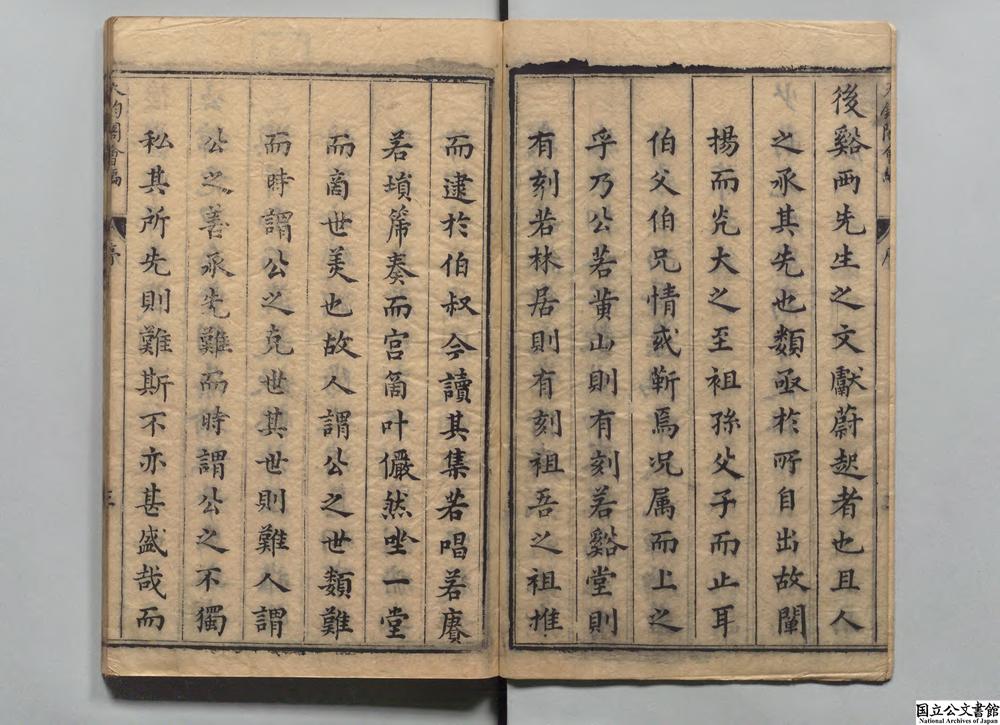 後谿西先生之文獻蔚起者也且人
之承其先也類亟於所自出故闡
揚而光大之至祖孫父子而止耳
伯父伯兄情或靳焉况属而上之
乎乃公若黄山則有刻若谿堂則
有刻若林居則有刻祖吾之祖推
而逮於伯叔今讀其集若唱若賡
若塤箎奏而宫商叶儼然坐一堂
而啇世美也故人謂公之世類難
而時謂公之克世其世則難人謂
公之善承先難而時謂公之不獨
私其所先則難斯不亦甚盛哉而
序
三
国立公文書館
National Archives of Japan